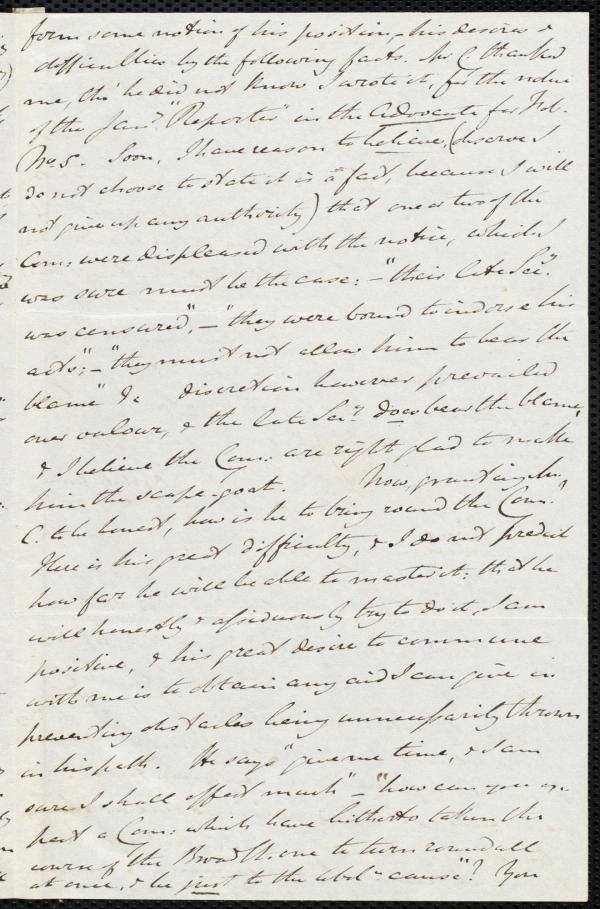 form some notion of his position, his desires &
difficulties by the following facts. Mr C. thanked
me, tho' he did not know I wrote it, for the notice
of the Jany. "Reporter" in the Advocate for Feb.
No 5. Soon, I have reason to believe, (observe I
do not choose to state it is a fact, because I will
not give up any authority) that one or two of the
Com: were displeased with the notice, which I
was sure must be the case: - "their late Secy.
was censured", - "they were bound to indorse his
acts"; - "they must not allow him to bear the
blame" &c discretion however prevailed
over valour, & the late Secy. does bear the blame,
& I believe the Com: are right glad to make
him the scape-goat. Now, granting Mr.
C. to be honest, how is he to bring round the Com:?
Here is his great difficulty, & I do not predict
how far he will be able to master it: that he
will honestly & assiduously try to do it, I am
positive, & his great desire to commune
with me is to obtain any aid I can give in
preventing obstacles being unnecessarily thrown
in his path. He says "give me time, & I am
sure I shall effect much" - "how can you ex-
pect a Com: which have hitherto taken the
course of the Broad St. one to turn round all
at once, & be just to the abol.n cause"? You